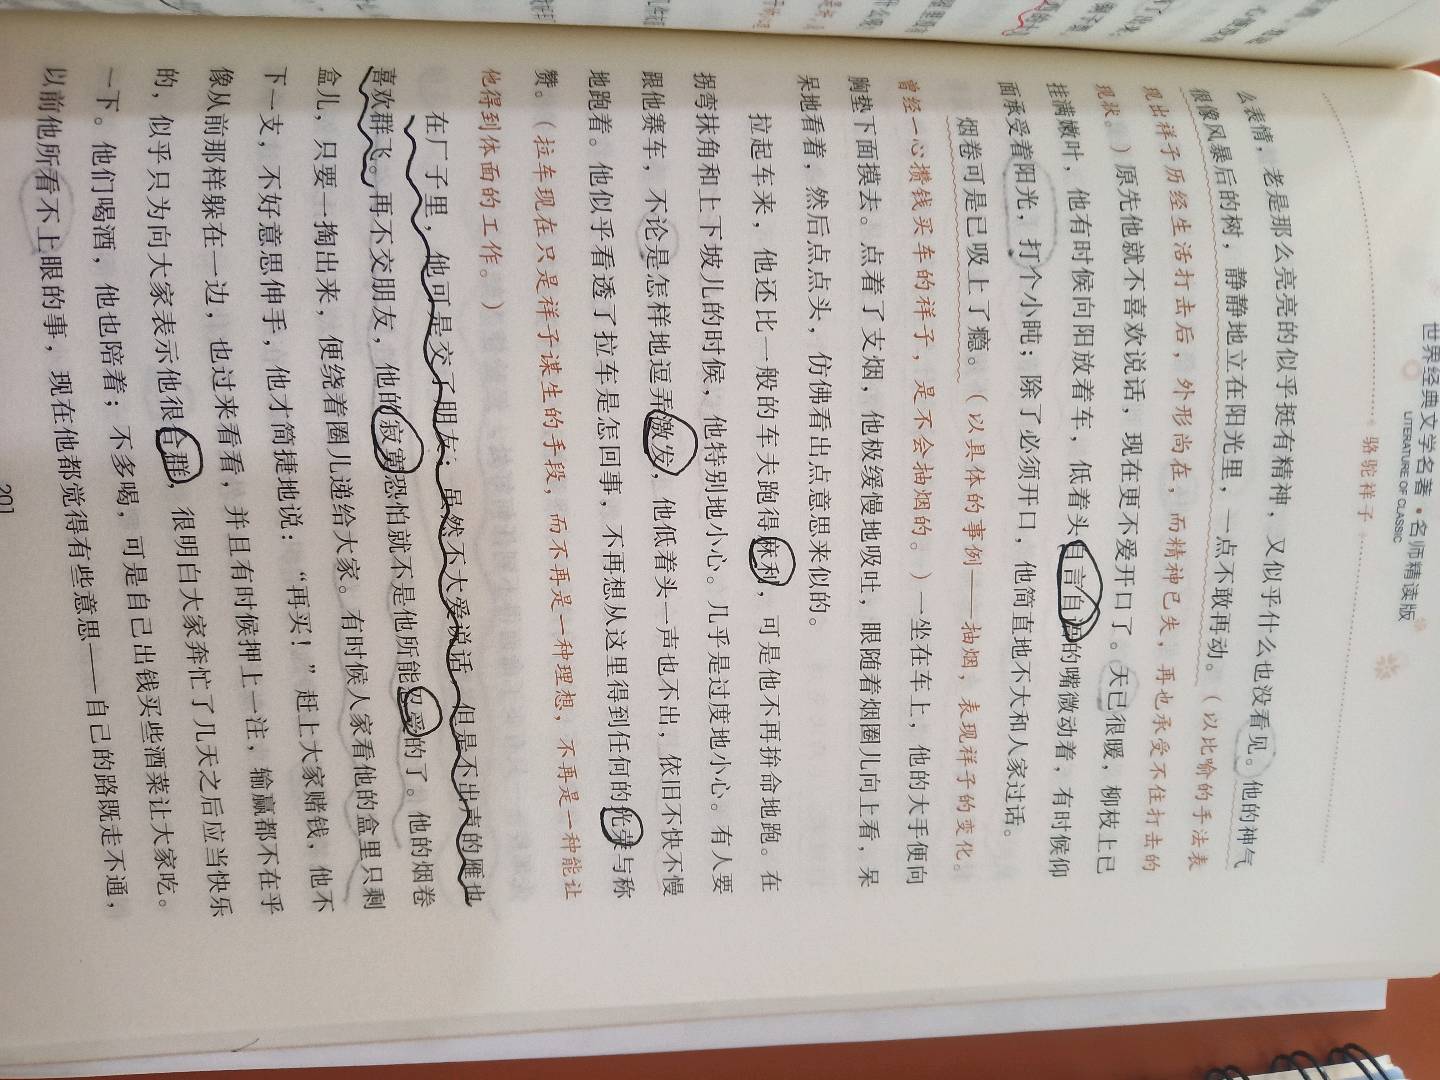 世界经典文学名著·名师精读版
LITERATURE OF CLASSIC
骆驼祥子
么表情，老是那么亮亮的似乎挺有精神，又似乎什么也没看见。他的神气
很像风暴后的树，静静地立在阳光里，一点不敢再动。（以比喻的手法表
现出祥子历经生活打击后，外形尚在，而精神已失，再也承受不住打击的
现状。）原先他就不喜欢说话，现在更不爱开口了。天已很暖，柳枝上已
挂满嫩叶，他有时候向阳放着车，低着头自言自语的嘴微动着，有时候仰
面承受着阳光，打个小盹；除了必须开口，他简直地不大和人家过话。
烟卷可是已吸上了瘾。（以具体的事例——抽烟，表现祥子的变化。
曾经一心攒钱买车的祥子，是不会抽烟的。）一坐在车上，他的大手便向
胸垫下面摸去。点着了支烟，他极缓慢地吸吐，眼随着烟圈儿向上看，呆
呆地看着，然后点点头，仿佛看出点意思来似的。
拉起车来，他还比一般的车夫跑得麻利，可是他不再拚命地跑。在
拐弯抹角和上下坡儿的时候，他特别地小心。几乎是过度地小心。有人要
跟他赛车，不论是怎样地逗弄激发，他低着头一声也不出，依旧不快不慢
地跑着。他似乎看透了拉车是怎回事，不再想从这里得到任何的光荣与称
赞。（拉车现在只是祥子谋生的手段，而不再是一种理想，不再是一种能让
他得到体面的工作。）
在厂子里，他可是交了朋友；虽然不大爱说话，但是不出声的雁也
喜欢群飞。再不交朋友，他的寂寞恐怕就不是他所能忍受的了。他的烟卷
盒儿，只要一掏出来，便绕着圈儿递给大家。有时候人家看他的盒里只剩
下一支，不好意思伸手，他才简捷地说：“再买！”赶上大家赌钱，他不
像从前那样躲在一边，也过来看看，并且有时候押上一注，输赢都不在乎
的，似乎只为向大家表示他很合群，很明白大家奔忙了几天之后应当快乐
一下。他们喝酒，他也陪着；不多喝，可是自己出钱买些酒菜让大家吃。
以前他所看不上眼的事，现在他都觉得有些意思——自己的路既走不通，
201